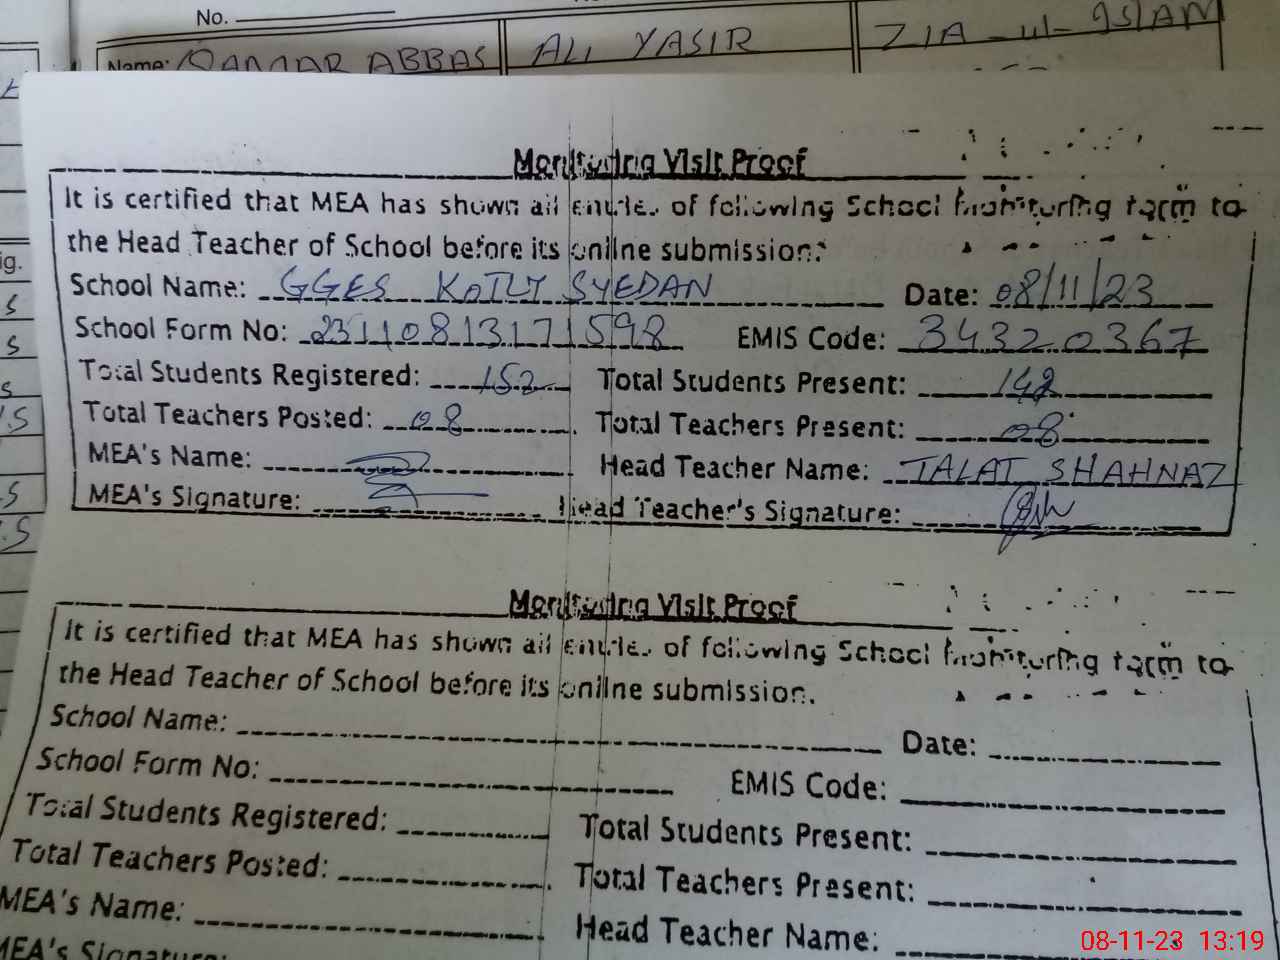 No.
Name: QAMAR ABBAS ALI YASIR ZIA-ul-ISLAM
Monitoring Visit Proof
It is certified that MEA has shown all entries of following School Monitoring form to
the Head Teacher of School before its online submission.
School Name: GGES KOTLY SYEDAN Date: 08/11/23
School Form No: 23110813171598 EMIS Code: 34320367
Total Students Registered: 152 Total Students Present: 142
Total Teachers Posted: 08 Total Teachers Present: 08
MEA's Name: Head Teacher Name: TALAT SHAHNAZ
MEA's Signature: Head Teacher's Signature:
Monitoring Visit Proof
It is certified that MEA has shown all entries of following School Monitoring form to
the Head Teacher of School before its online submission.
School Name: Date:
School Form No: EMIS Code:
Total Students Registered: Total Students Present:
Total Teachers Posted: Total Teachers Present:
MEA's Name: Head Teacher Name:
MEA's Signature:
08-11-23 13:19